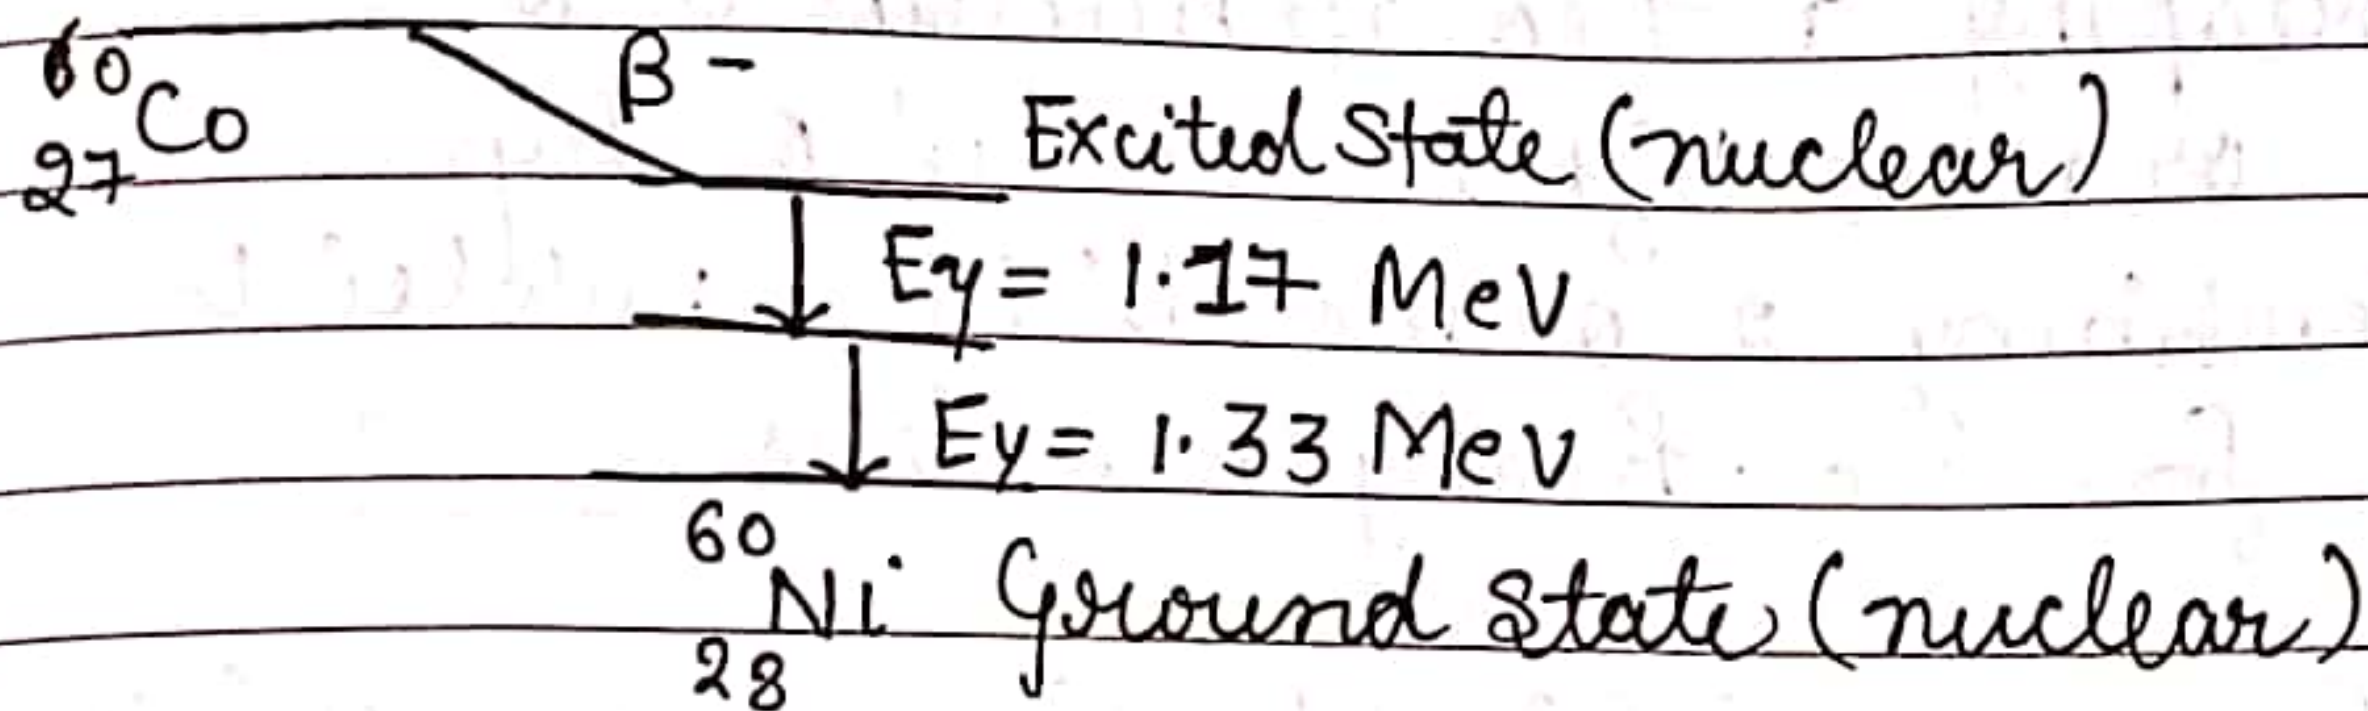 ⁶⁰₂₇Co β⁻
Excited State (nuclear)
Eγ = 1.17 MeV
Eγ = 1.33 MeV
⁶⁰₂₈Ni Ground State (nuclear)